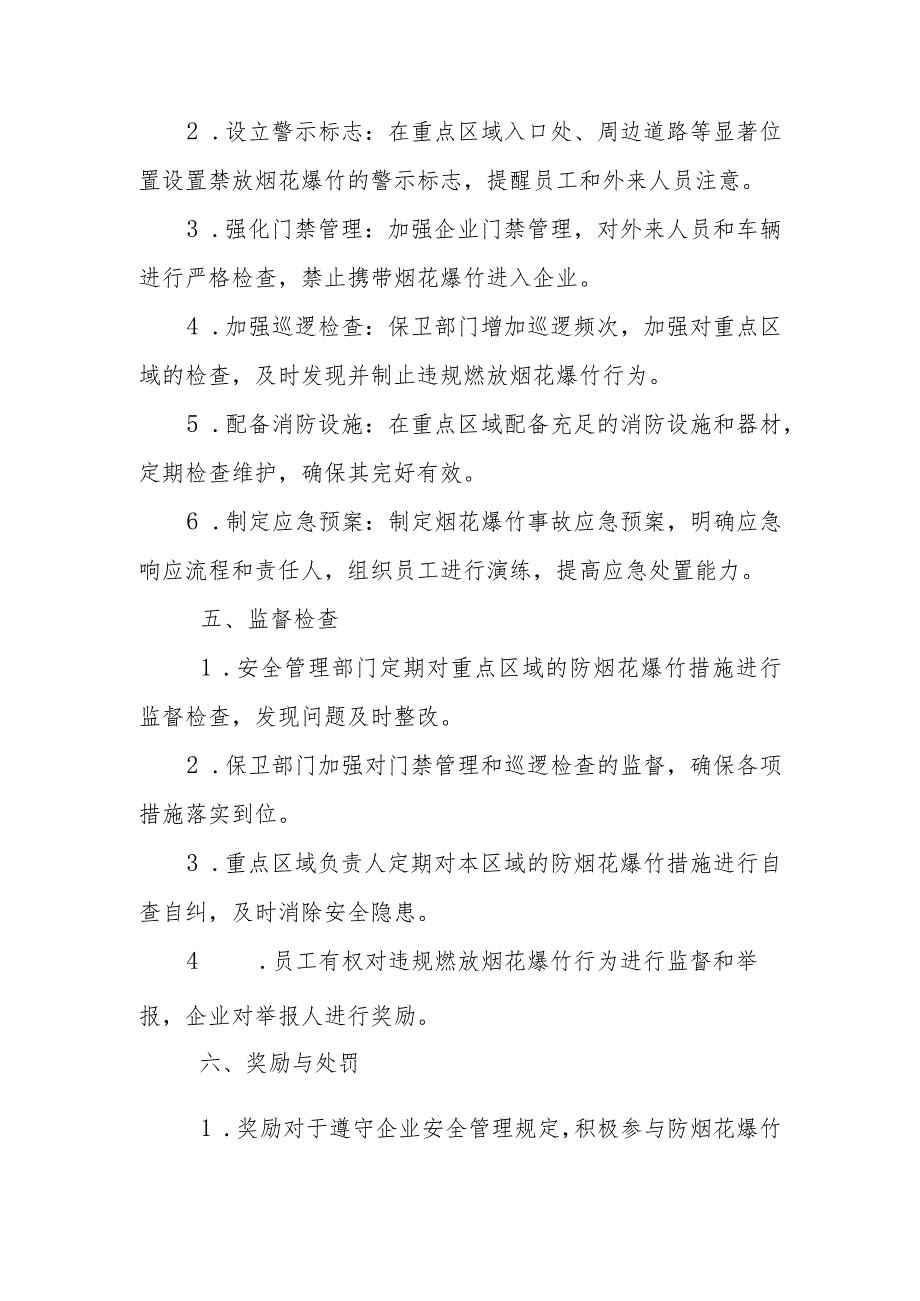 2 .设立警示标志：在重点区域入口处、周边道路等显著位
置设置禁放烟花爆竹的警示标志，提醒员工和外来人员注意。
3 .强化门禁管理：加强企业门禁管理，对外来人员和车辆
进行严格检查，禁止携带烟花爆竹进入企业。
4 .加强巡逻检查：保卫部门增加巡逻频次，加强对重点区
域的检查，及时发现并制止违规燃放烟花爆竹行为。
5 .配备消防设施：在重点区域配备充足的消防设施和器材，
定期检查维护，确保其完好有效。
6 .制定应急预案：制定烟花爆竹事故应急预案，明确应急
响应流程和责任人，组织员工进行演练，提高应急处置能力。
五、监督检查
1 .安全管理部门定期对重点区域的防烟花爆竹措施进行
监督检查，发现问题及时整改。
2 .保卫部门加强对门禁管理和巡逻检查的监督，确保各项
措施落实到位。
3 .重点区域负责人定期对本区域的防烟花爆竹措施进行自
查自纠，及时消除安全隐患。
4 .员工有权对违规燃放烟花爆竹行为进行监督和举
报，企业对举报人进行奖励。
六、奖励与处罚
1 .奖励对于遵守企业安全管理规定,积极参与防烟花爆竹